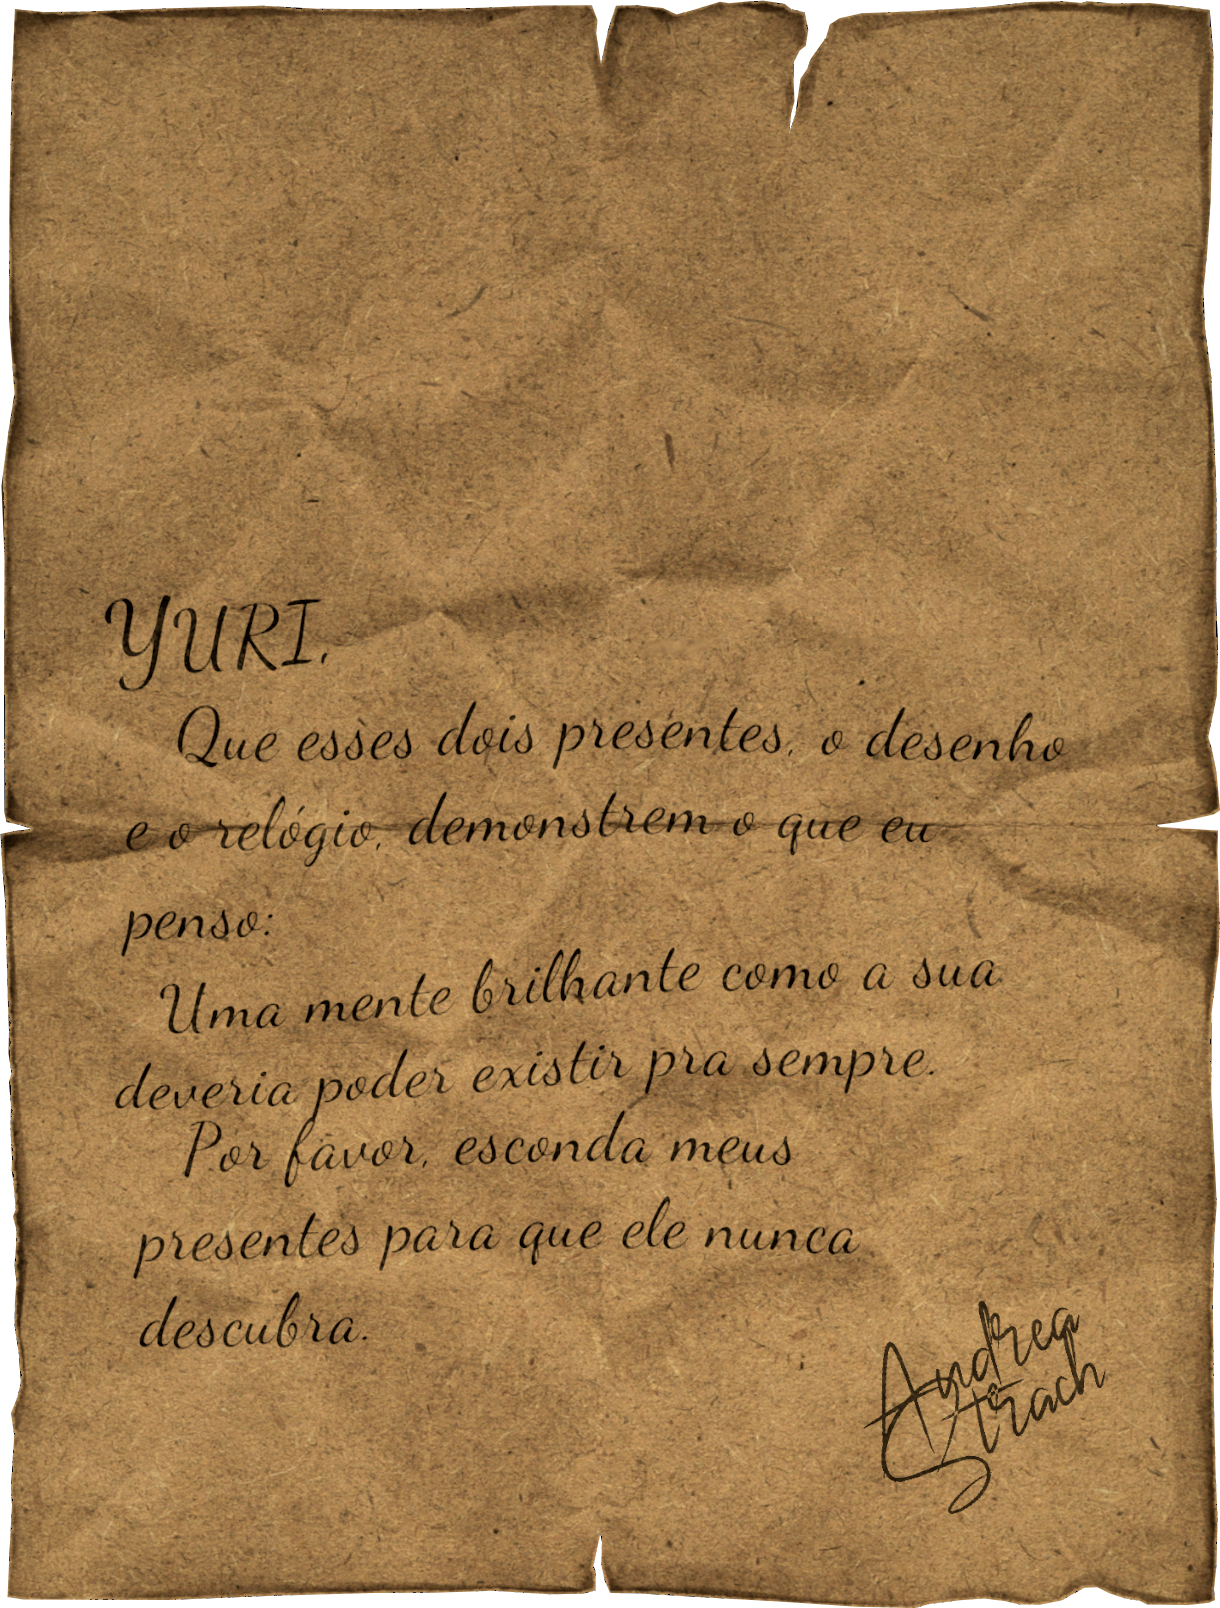 YURI,
Que esses dois presentes, o desenho
e o relógio, demonstrem o que eu
penso:
Uma mente brilhante como a sua
deveria poder existir pra sempre.
Por favor, esconda meus
presentes para que ele nunca
descubra.
Andrea
Strach